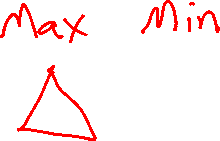 Max Min